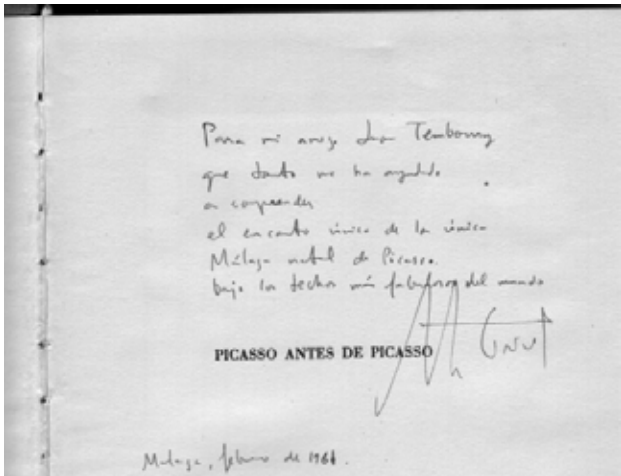 Para mi amigo Juan Temboury
que tanto me ha ayudado
a comprender
el encanto único de la única
Málaga natal de Picasso.
bajo los techos más fabulosos del mundo
PICASSO ANTES DE PICASSO
Malaga, febrero de 1966.